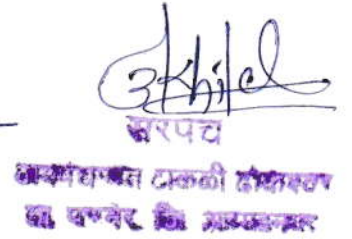 सरपंच
ग्रामपंचायत टाकळी ढोकेश्वर
ता. पारनेर, जि. अहमदनगर